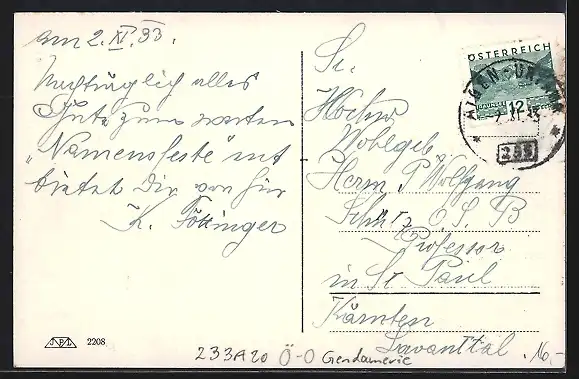 am 2. XI. 33.
Nachträglich alles
Gute zum werten
„Namensfeste" ent
bietet Dir von Hür
K. Föttinger
Sr.
Hochw
Wohlgeb.
Herrn P Wolfgang
O. S. B
Professor
in St Paul
Kärnten
Lavanttal
ÖSTERREICH
12
2. XI. 33
299
2208
233A20 Ö-O Gendamerie
16.-